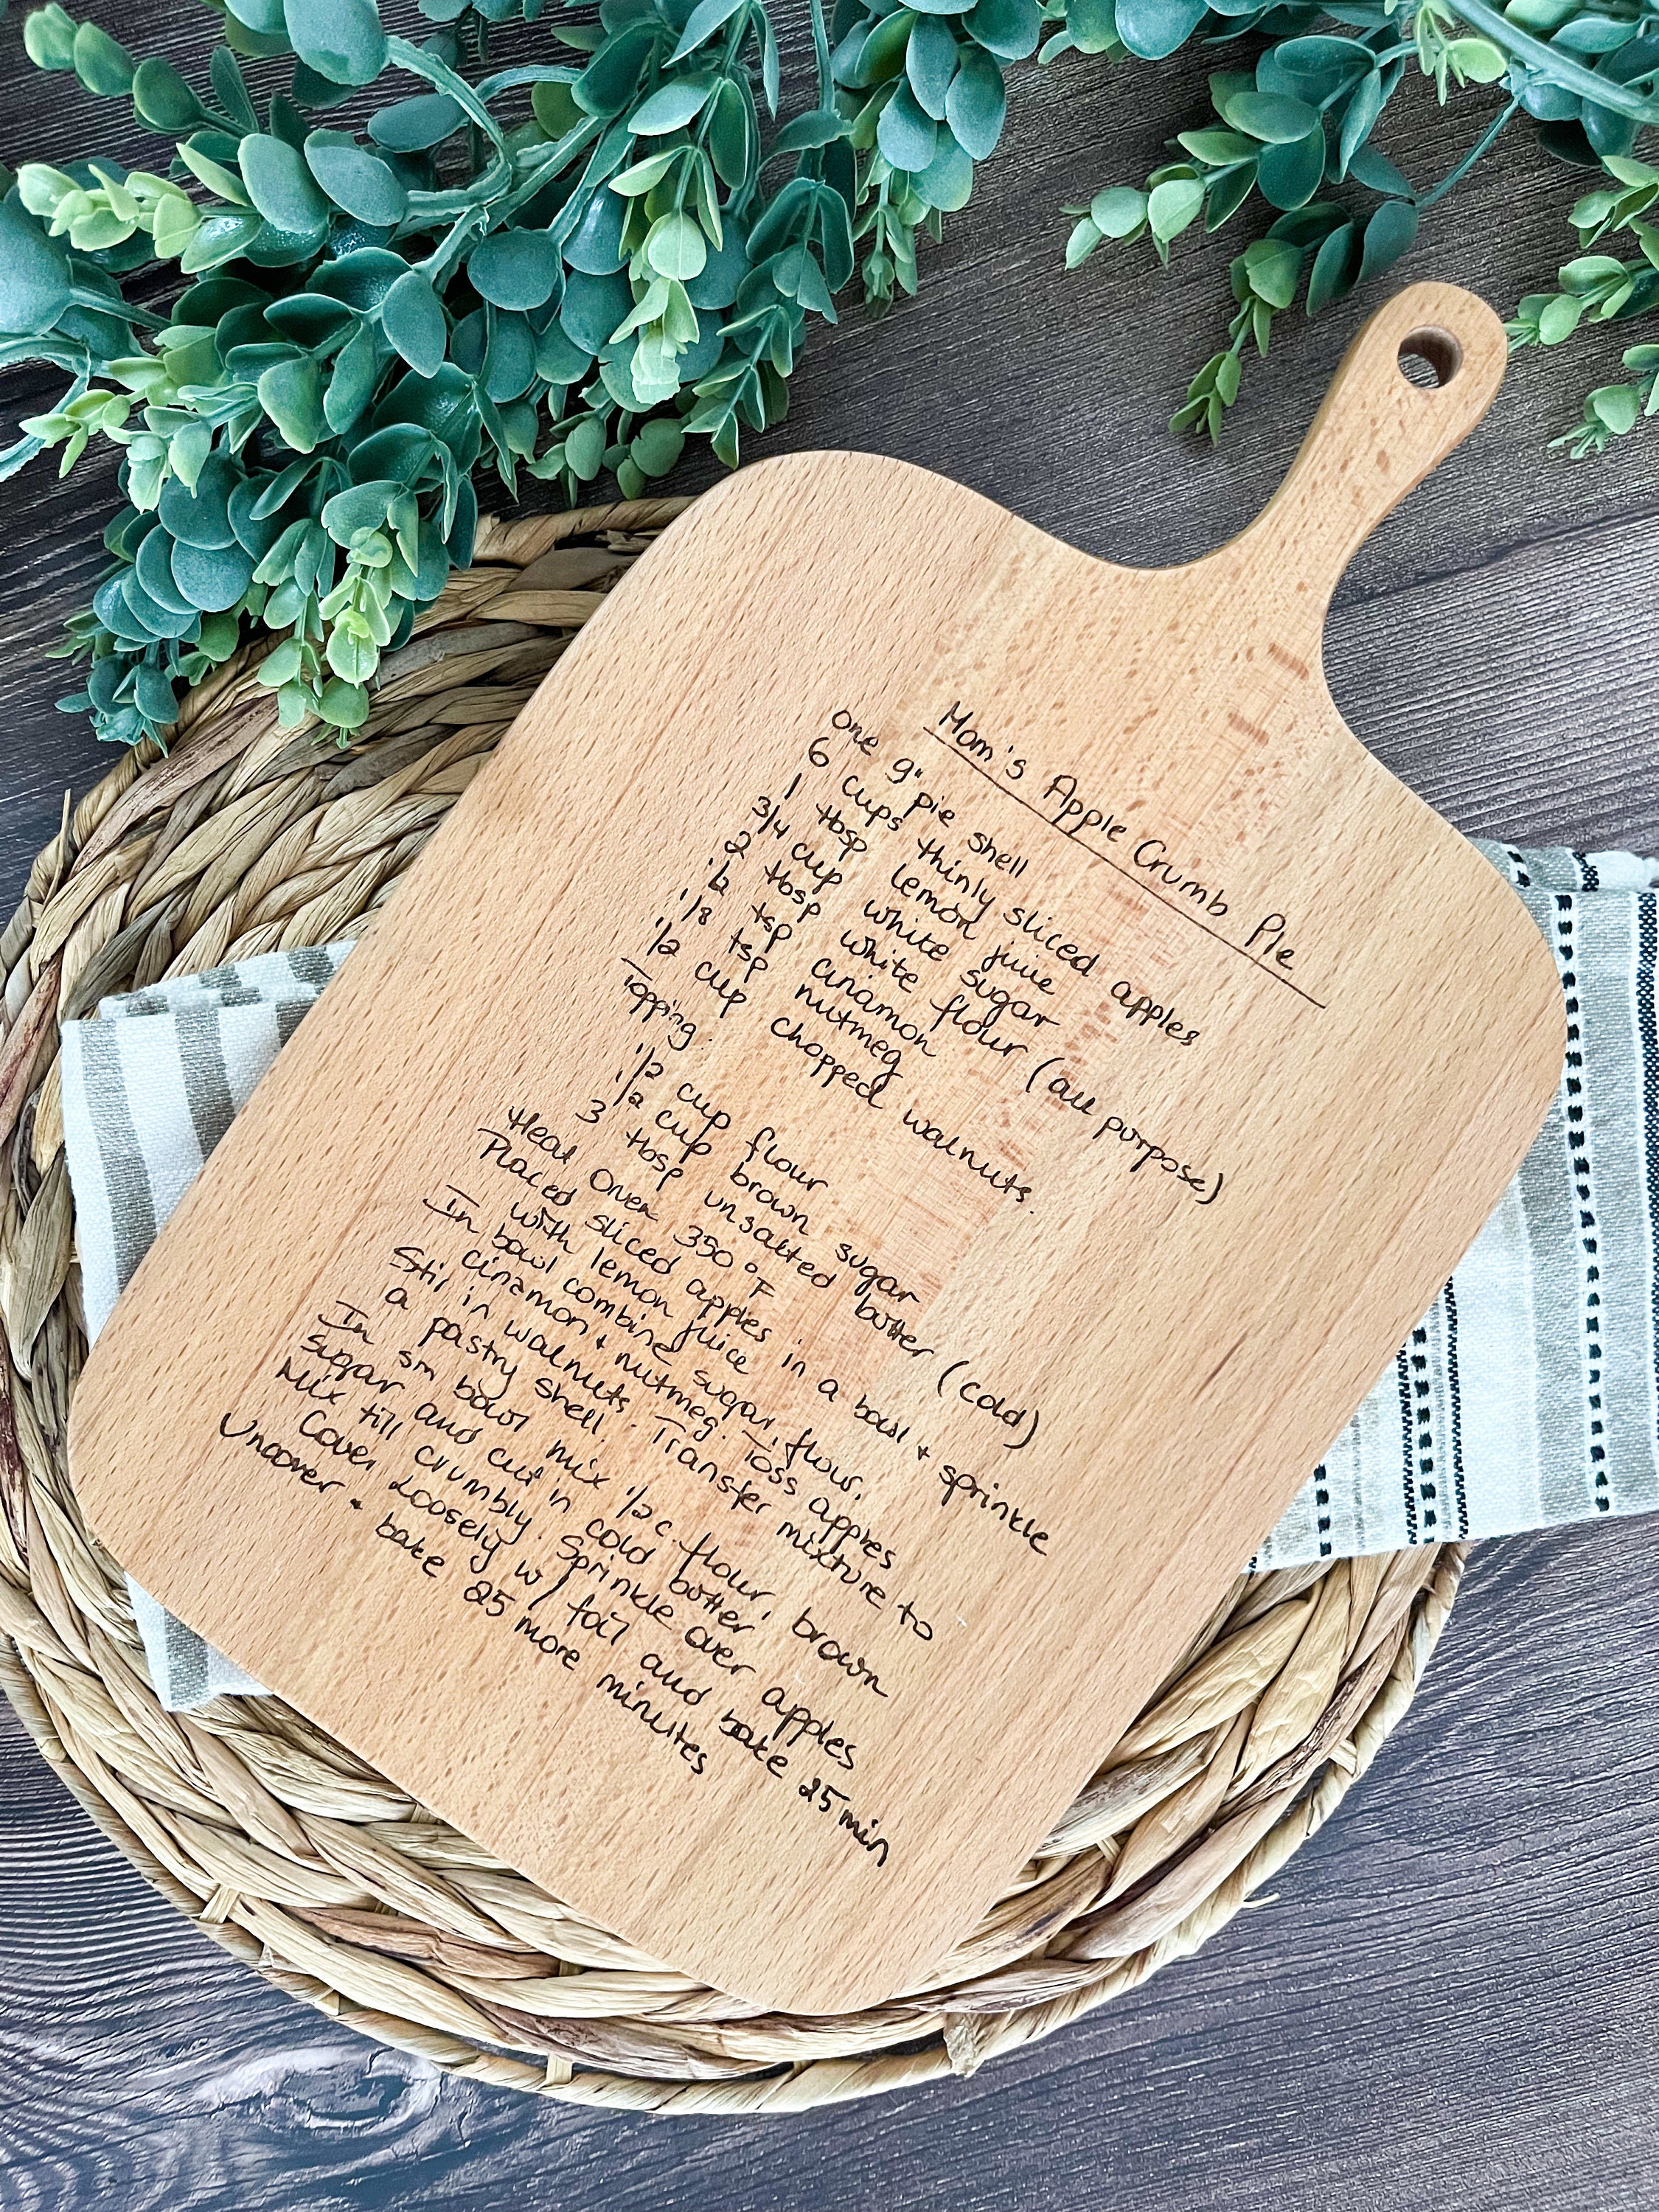 Mom's Apple Crumb Pie
One 9" pie shell
6 cups thinly sliced apples
1 tbsp lemon juice
3/4 cup white sugar
2 tbsp white flour (all purpose)
1/2 tsp cinamon
1/8 tsp nutmeg
1/2 cup chopped walnuts.
Topping:
1/2 cup flour
1/2 cup brown sugar
3 tbsp unsalted butter (cold)
Heat Oven 350°F
Placed sliced apples in a bowl + sprinkle
with lemon juice
In bowl combine sugar, flour,
cinamon + nutmeg. Toss apples
Stir in walnuts. Transfer mixture to
a pastry shell.
In sm bowl mix 1/2 c. flour, brown
sugar and cut in cold butter.
Mix till crumbly. Sprinkle over apples
Cover Loosely w/ foil and bake 25 min
Uncover + bake 25 more minutes